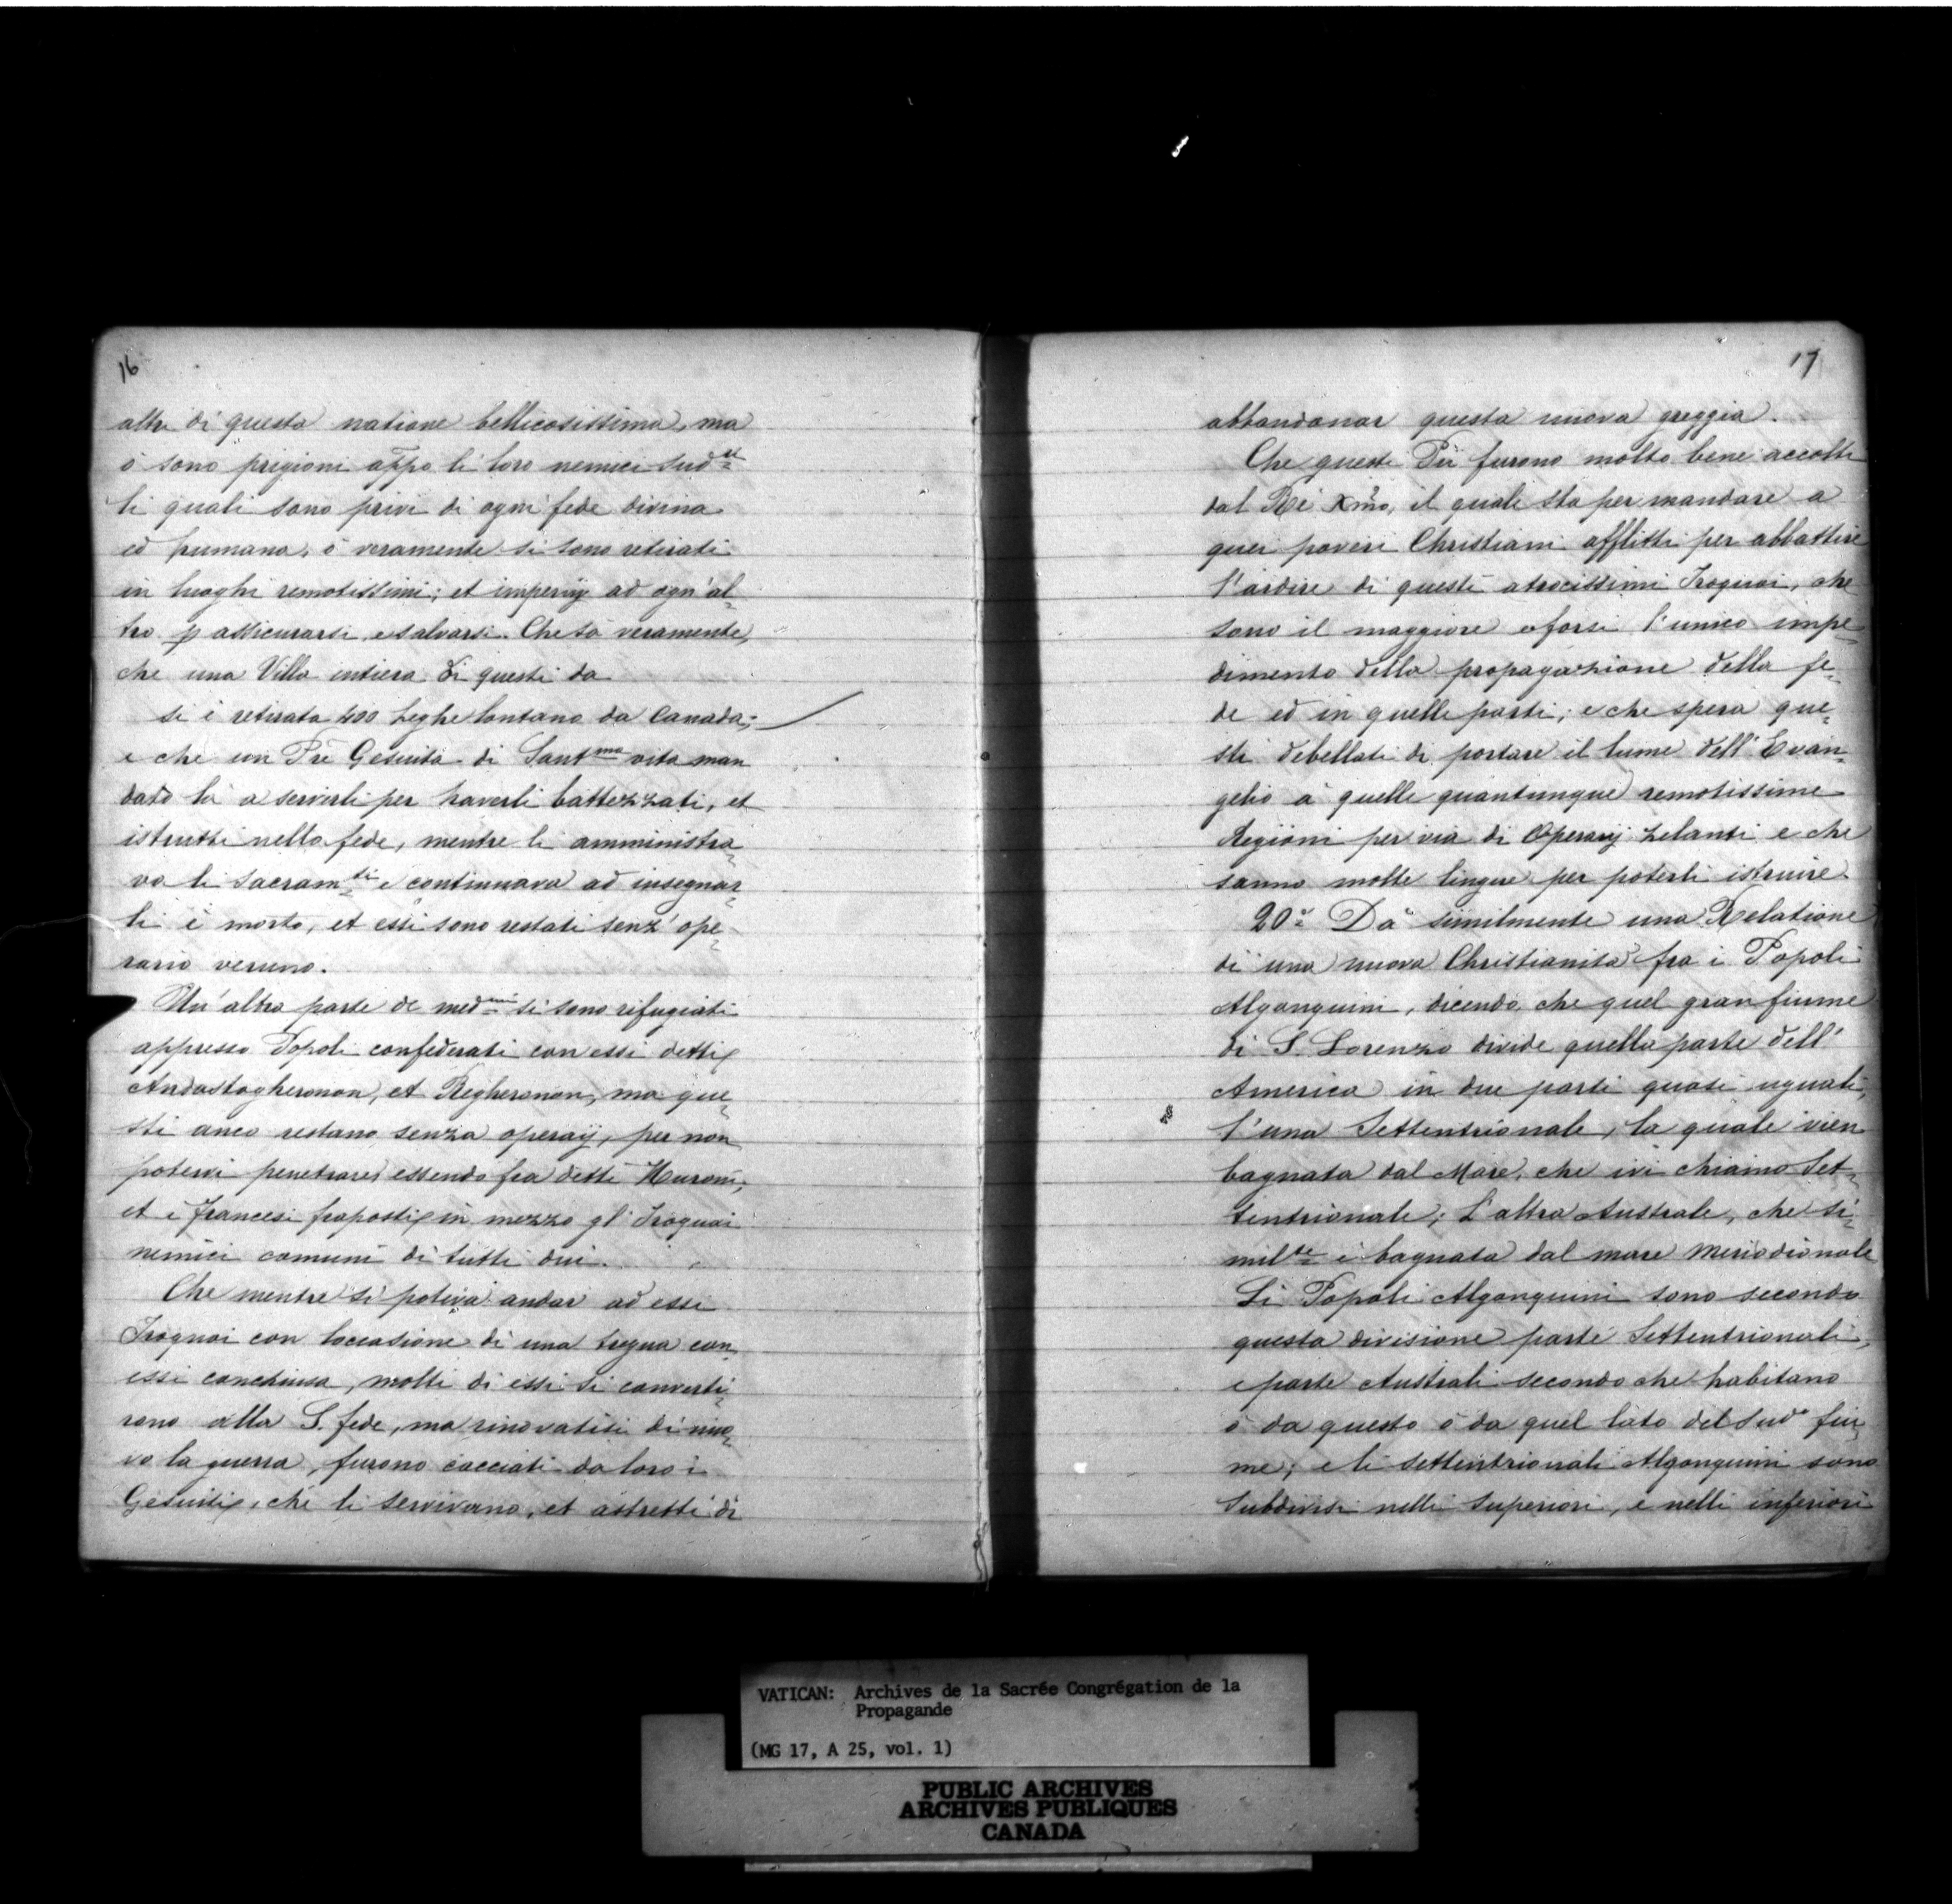 16
altri di questa natione bellicosissima, ma
ò sono prigioni appo li loro nemici sud.ti
li quali sono privi di ogni fede divina
ed humana, ò veramente si sono retirati
in luoghi remotissimi; et impervij ad ogn'al-
tro p assicurarsi e salvarsi. Che sà veramente,
che una Villa intiera di questi da
si è retirata 400 leghe lontano da Canada;
e che un Pre Gesuita di Sant.ma vita man
dato là a servirli per haverli battezzati, et
istrutti nella fede, mentre li amministra-
va li Sacram.ti e continuava ad insegnar-
li è morto, et essi sono restati senz'ope-
rario veruno.
Un'altra parte de med.mi si sono rifugiati
appresso Popoli confederati con essi detti
Andastogheronon, et Regheronon, ma que-
sti anco restano senza operaij, per non
potervi penetrare essendo fra detti Huroni,
et i francesi fraposti in mezzo gl'Iroquai
nemici comuni di tutti dui.
Che mentre si poteva andar ad essi
Iroquai con l'occasione di una tregua con
essi conchiusa, molti di essi si converti-
rono alla S. fede, ma rinovatisi di nuo-
vo la guerra, furono cacciati da loro i
Gesuiti, che li servivano, et astretti di
17
abbandonar questa nuova greggia.
Che questi Pri furono molto bene accolti
dal Rè Xmo, il quali sta per mandare a
quei poveri Christiani afflitti per abbattire
l'ardire di questi atrocissimi Iroquai, che
sono il maggiore e forsi l'unico impe-
dimento della propagazhione della fe-
de ed in quelle parti; e che spera que-
sti debellati di portare il lume dell'Evan-
gelio à quelle quantunque remotissime
Regioni per via di Operarij zelanti e che
sanno molte lingue per poterli istruire.
20.o Dà similmente una Relatione
di una nuova Christianità fra i Popoli
Algonquini, dicendo, che quel gran fiume
di S. Lorenzo divide quella parte dell'
America in due parti quasi uguali,
l'una Settentrionale, la quale vien
bagnata dal Mare, che ivi chiamo Set-
tentrionale; L'altra Australe, che si-
mil.te è bagnata dal mare Meriodionale
Li Popoli Algonquini sono secondo
questa divisione parte Settentrionali,
e parte Australi secondo che habitano
ò da questo ò da quel lato del Sud.o fiu-
me; e li Settentrionali Algonquini sono
Subdivisi nelli Superiori, e nelli inferiori
VATICAN: Archives de la Sacrée Congrégation de la
Propagande
(MG 17, A 25, vol. 1)
PUBLIC ARCHIVES
ARCHIVES PUBLIQUES
CANADA